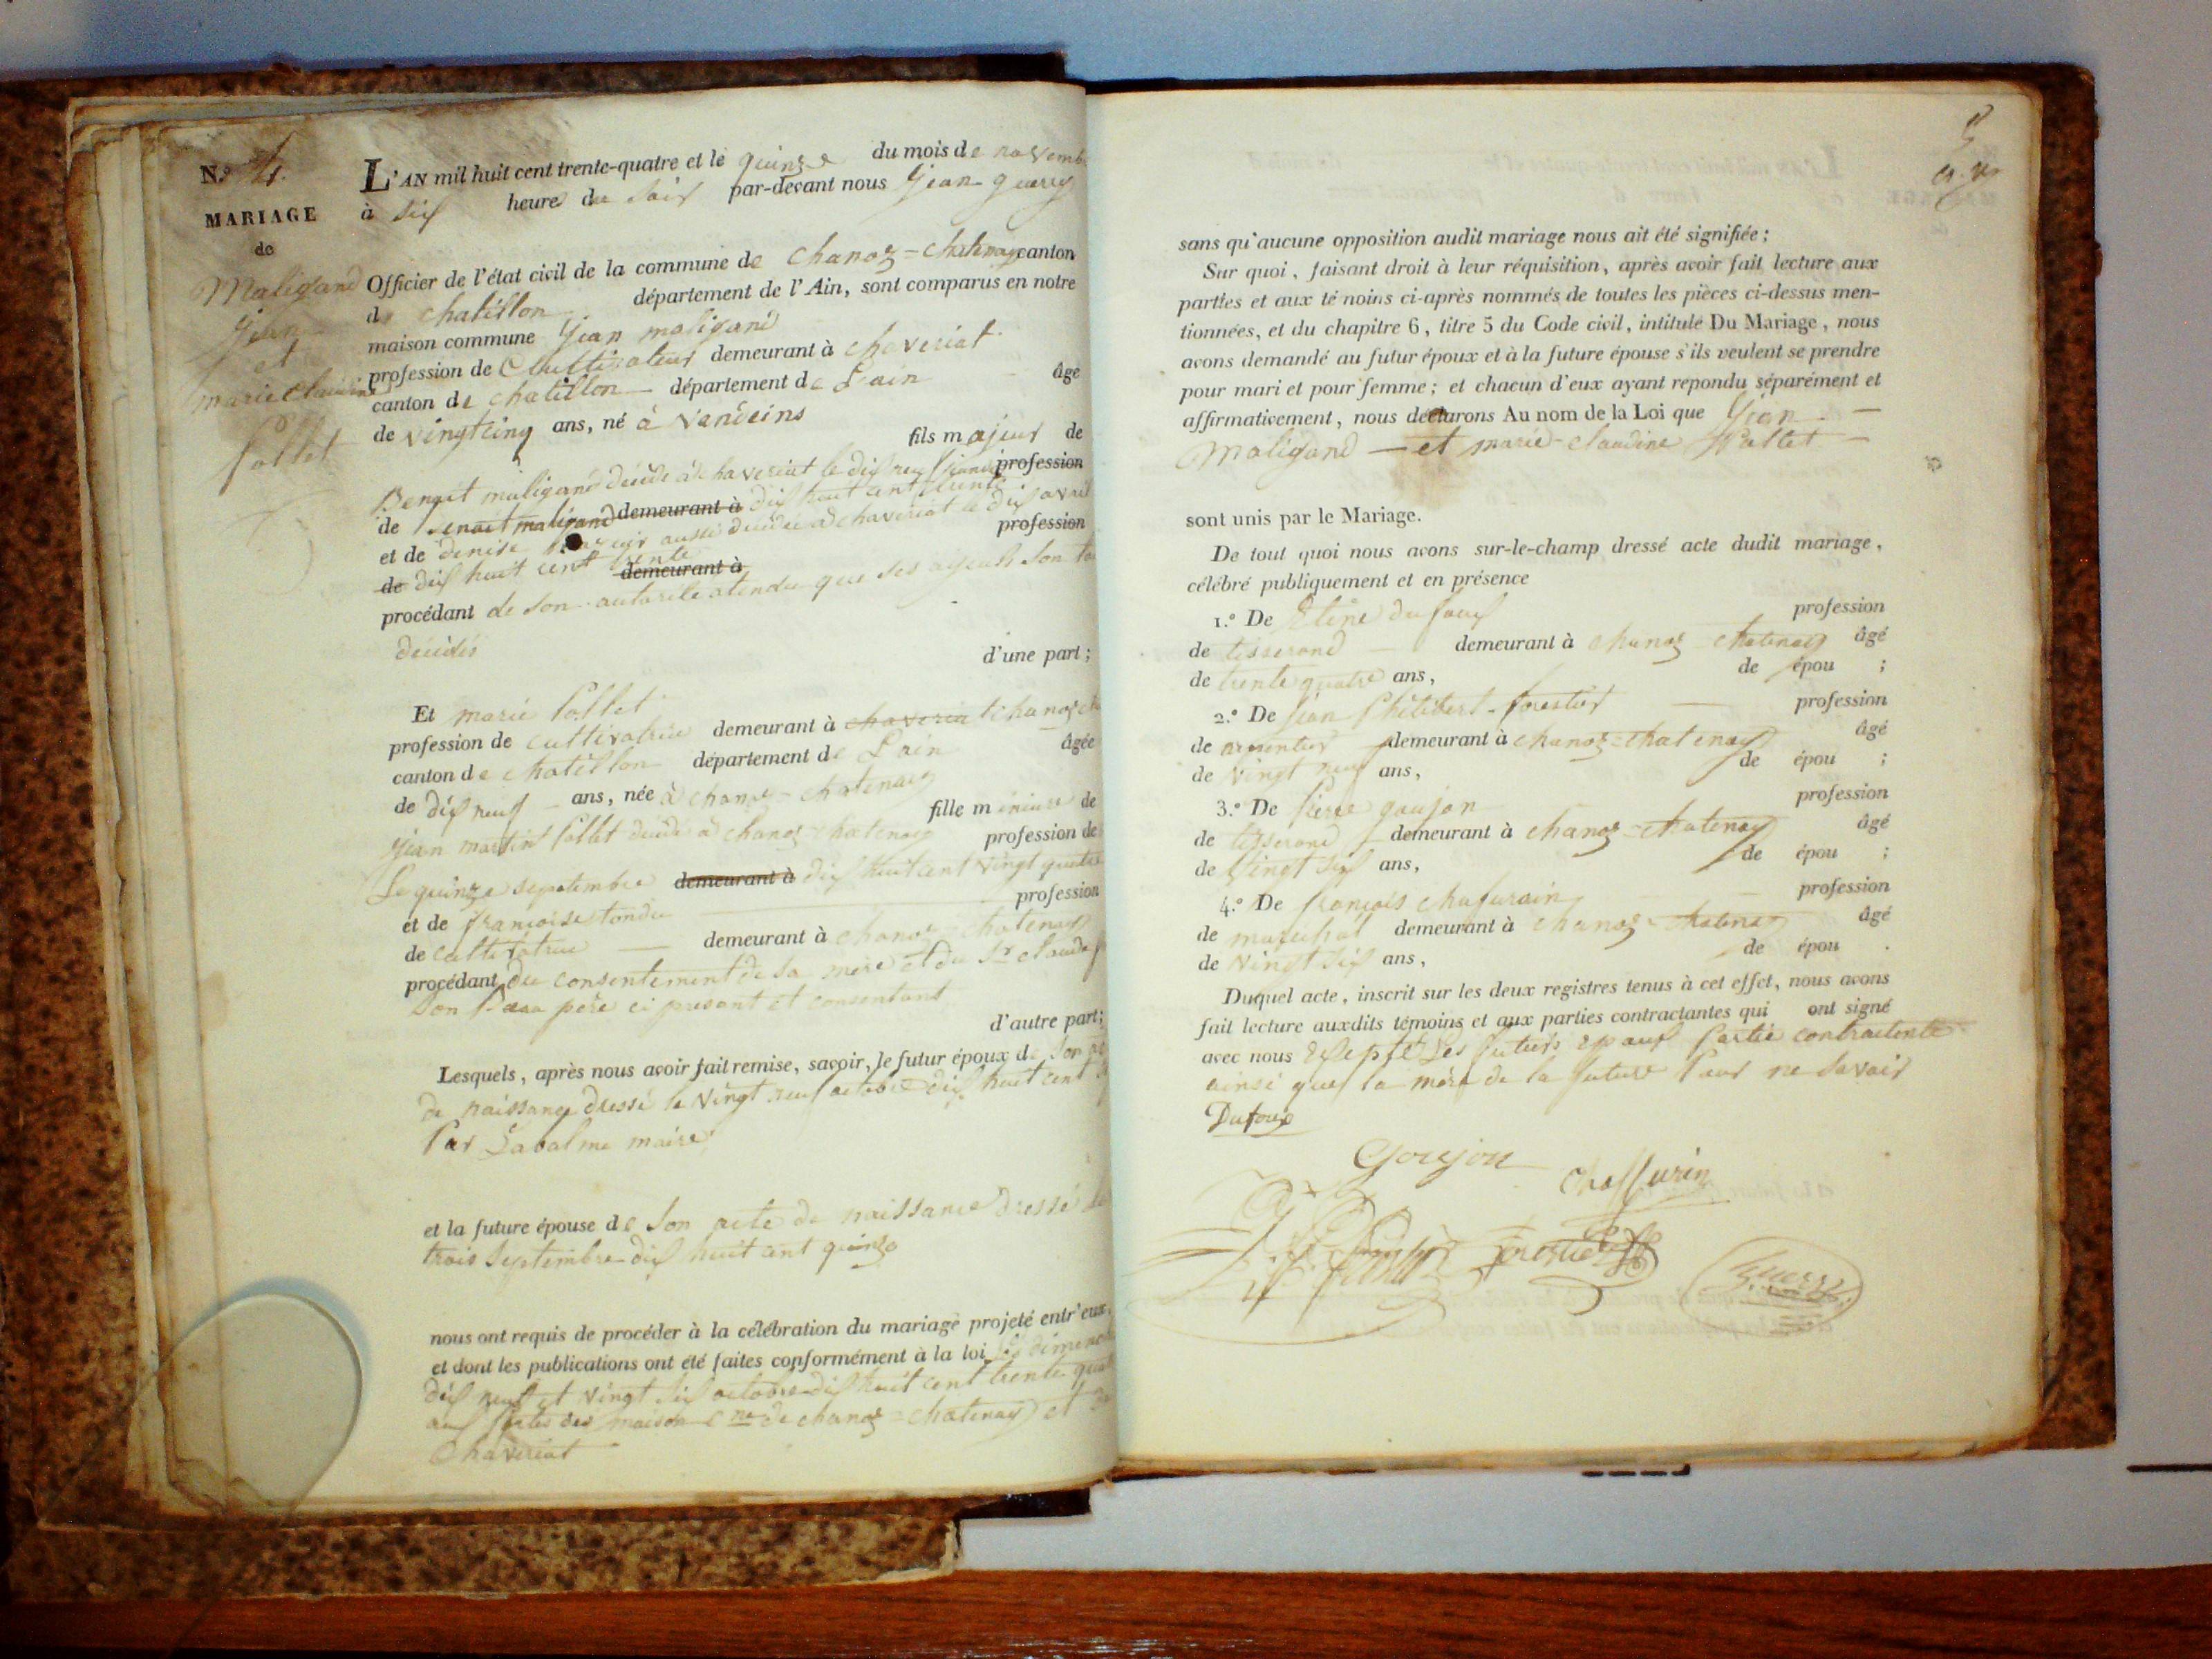 N.o 4.
MARIAGE
de
Maligand
Jean
et
marie claudine
Pollet
L'AN mil huit cent trente-quatre et le quinze du mois de novemb
à six heures du soir par-devant nous Jean guerry
Officier de l'état civil de la commune de chanoz=chatenay canton
de chatillon département de l'Ain, sont comparus en notre
maison commune Jean maligand
profession de Cultivateur demeurant à chaveriat
canton de chatillon département de L'ain âgé
de vingt cinq ans, né à vandeins
fils majeur de
Benoit maligand décédé à chaveriat le dix neuf janvier profession
de benoit maligand demeurant à dix huit cent trente
et de denise aussi décédée à chaveriat le dix avril profession
de dix huit cent trente demeurant à
procédant de son autorité atendu que ses ayeuls son
décédés
d'une part;
Et marie Pollet
profession de cultivatrice demeurant à chaveria chanoz
canton de chatillon département de L'ain âgée
de dix neuf ans, née à chanoz=chatenay
fille mineure de
jean martin Pollet décédé à chanoz chatenay profession de
Le quinze septembre demeurant à dix huit cent vingt quatre
et de françoise tondu profession
de cultivatrice demeurant à chanoz=chatenay
procédant du consentement de sa mère et du Sr claude
son père ci présent et consentant
d'autre part;
Lesquels, après nous avoir fait remise, savoir, le futur époux de son
de naissance dressé le vingt neuf octobre dix huit cent
Par Labalme maire
et la future épouse de son acte de naissance dressé le
trois septembre dix huit cent quinze
nous ont requis de procéder à la célébration du mariage projeté entr'eux,
et dont les publications ont été faites conformément à la loi les dimenc
dix neuf et vingt six octobre dix huit cent trente quat
aux portes des maison cne de chanoz=chatenay et
Chaveriat
5
sans qu'aucune opposition audit mariage nous ait été signifiée;
Sur quoi, faisant droit à leur réquisition, après avoir fait lecture aux
parties et aux té noins ci-après nommés de toutes les pièces ci-dessus men-
tionnées, et du chapitre 6, titre 5 du Code civil, intitulé Du Mariage, nous
avons demandé au futur époux et à la future épouse s'ils veulent se prendre
pour mari et pour femme; et chacun d'eux ayant repondu séparément et
affirmativement, nous déclarons Au nom de la Loi que Jean
Maligand et marie-claudine Pollet
sont unis par le Mariage.
De tout quoi nous avons sur-le-champ dressé acte dudit mariage,
célébré publiquement et en présence
1.o De Etine dufour profession
de tisserand demeurant à chanoz chatenay âgé
de trente quatre ans, de épou ;
2.o De Jean Philibert forestier profession
de demeurant à chanoz=chatenay âgé
de vingt neuf ans, de épou ;
3.o De Pierre goujon profession
de tisserand demeurant à chanoz=chatenay âgé
de vingt six ans, de épou ;
4.o De françois chafurain profession
de marechal demeurant à chanoz=chatenay âgé
de vingt six ans, de épou .
Duquel acte, inscrit sur les deux registres tenus à cet effet, nous avons
fait lecture auxdits témoins et aux parties contractantes qui ont signé
avec nous Exepté Les futurs epoux Partie contractente
ainsi que la mère de la future Pour ne savoir
Dufour
Goujon
Chaffurin
forestier
Guerry